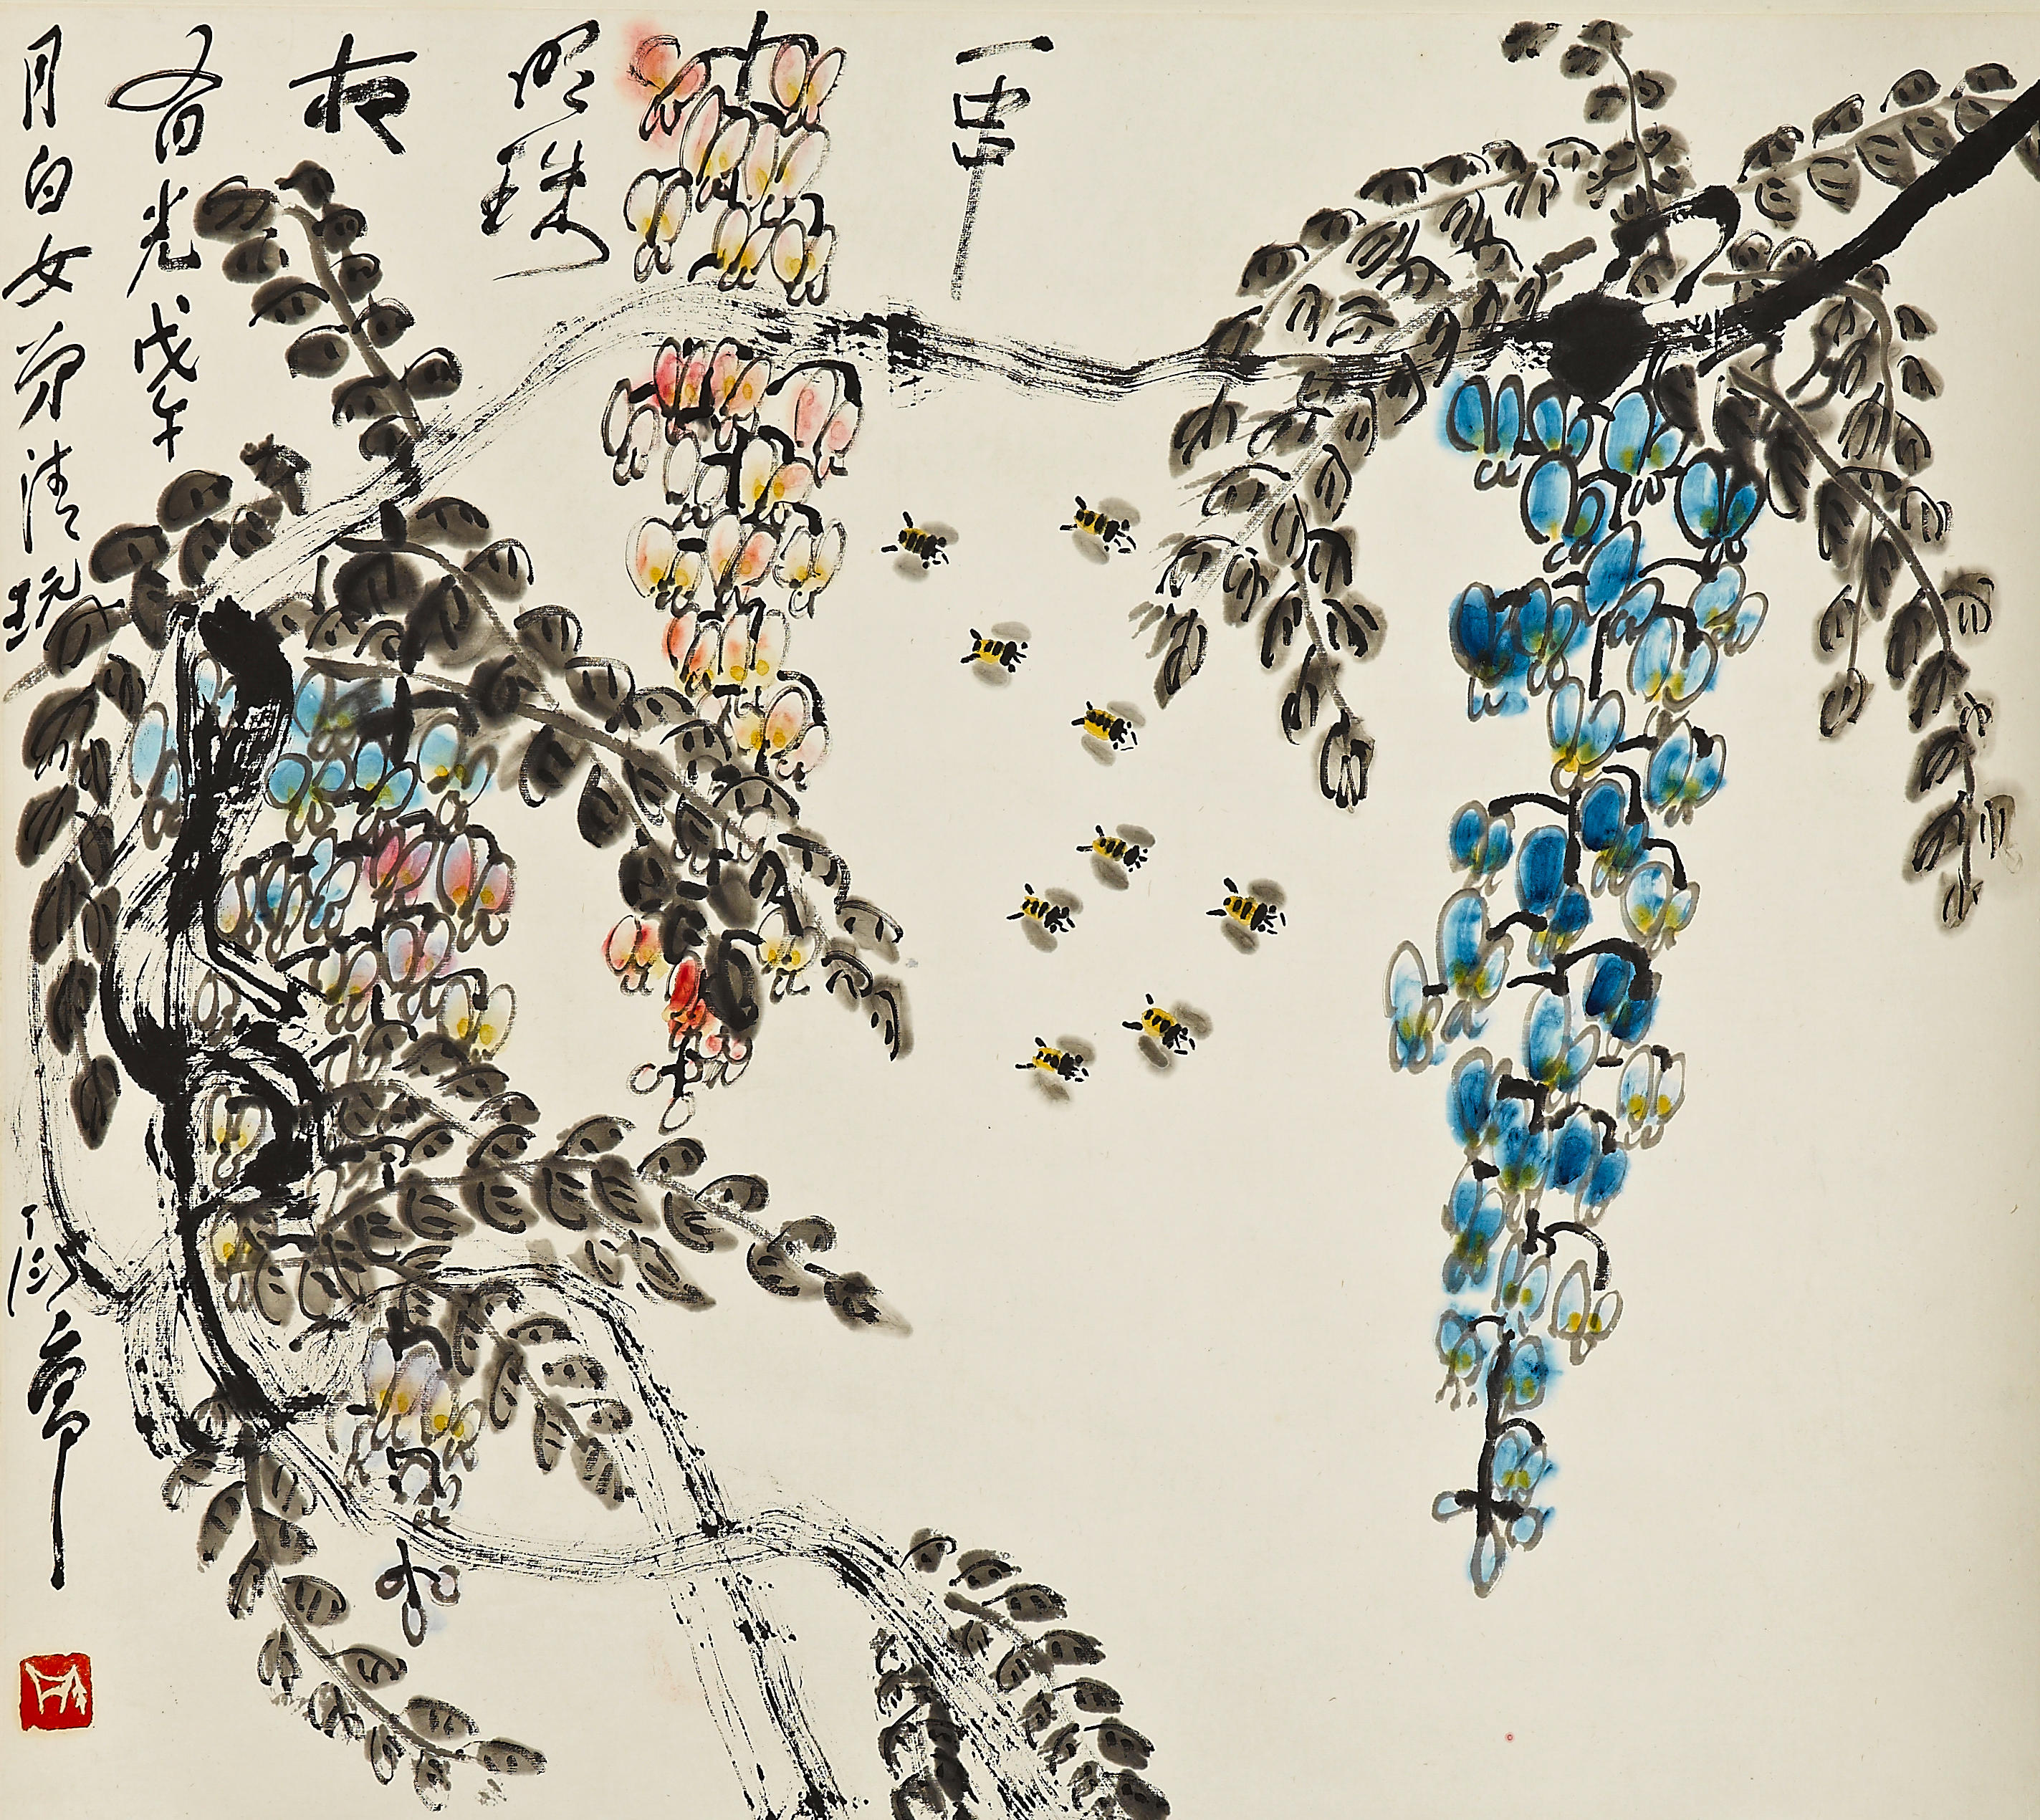 一串
明珠
夜
有光戊午
月白女弟清玩
丁衍庸